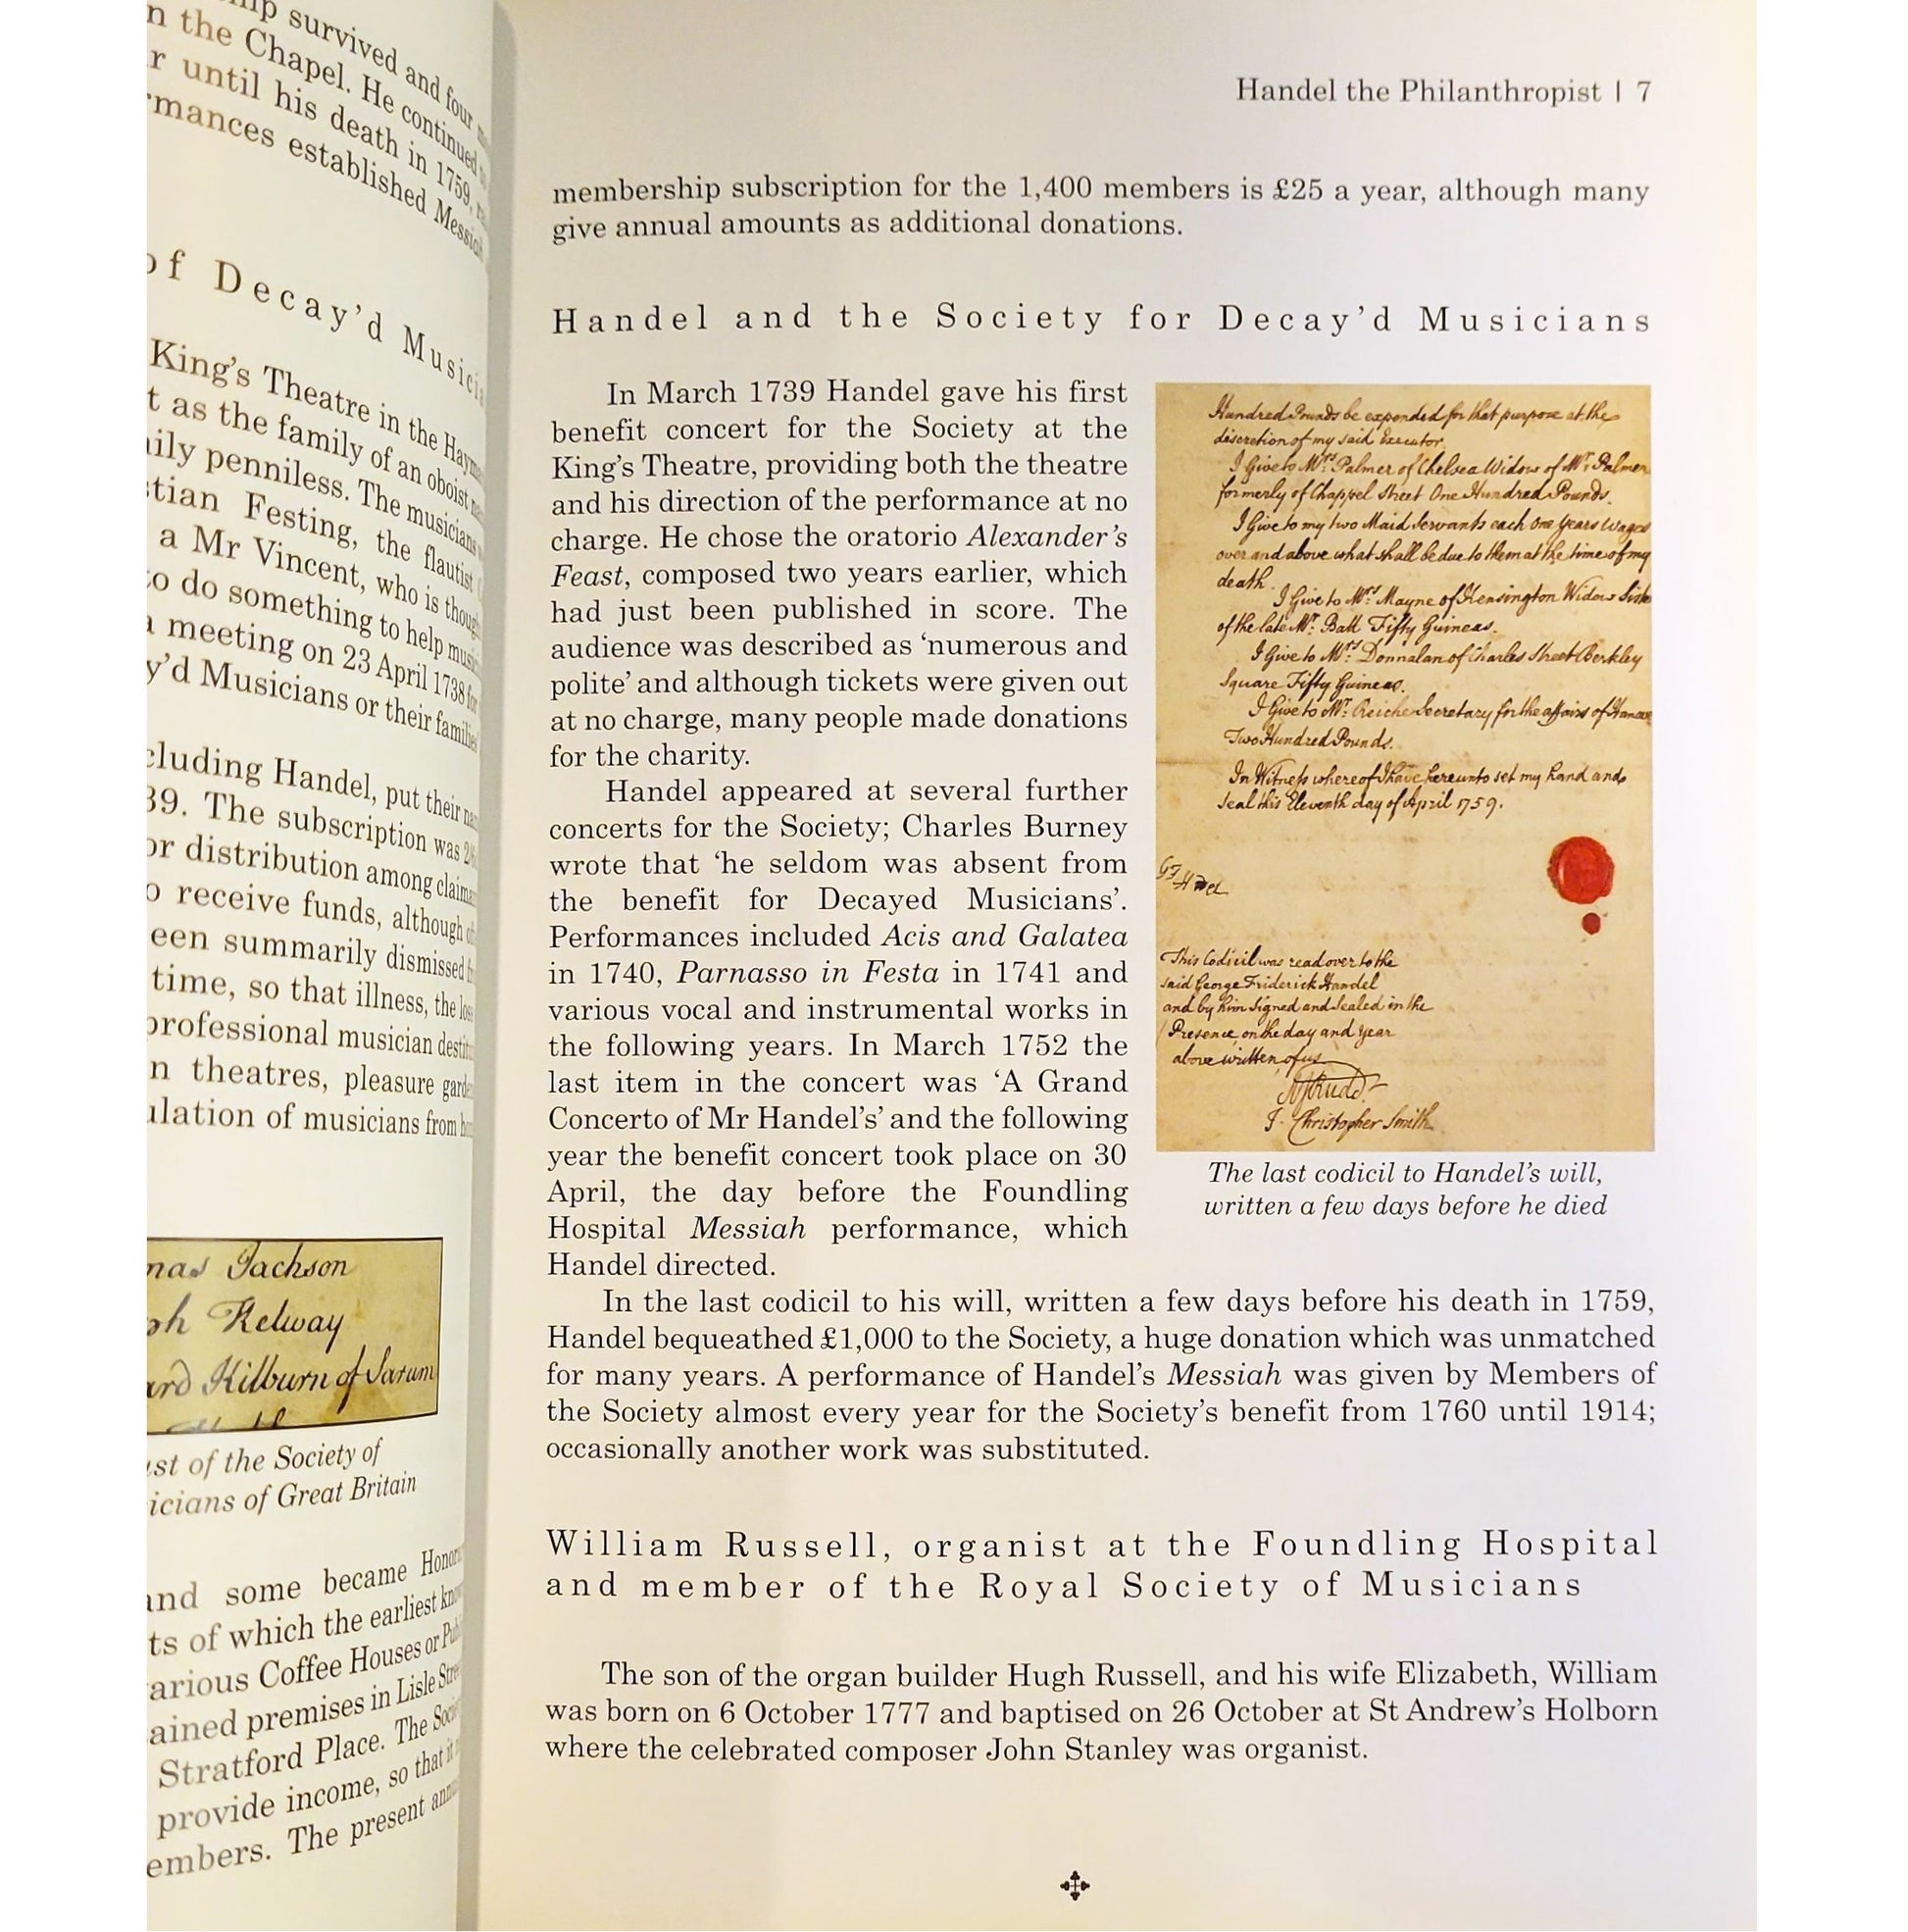 survived and four
n the Chapel. He continued
r until his death in 1759,
rmances established Messiah
of Decay'd
King's Theatre in the
t as the family of an oboist
ily penniless. The musicians
stian Festing, the flautist
a Mr Vincent, who is
to do something to help
a meeting on 23 April 1738 for
y'd Musicians or their families
cluding Handel, put their
39. The subscription was
or distribution among
o receive funds, although
een summarily dismissed
time, so that illness, the
professional musician
n theatres, pleasure
ulation of musicians from
mas Jackson
ph Kelway
ard Kilburn of Sarum
ist of the Society of
icians of Great Britain
and some became
ts of which the earliest
arious Coffee Houses or
ained premises in Lisle
Stratford Place. The
provide income, so that it
embers. The present
Handel the Philanthropist | 7
membership subscription for the 1,400 members is £25 a year, although many
give annual amounts as additional donations.
Handel and the Society for Decay'd Musicians
In March 1739 Handel gave his first
benefit concert for the Society at the
King's Theatre, providing both the theatre
and his direction of the performance at no
charge. He chose the oratorio Alexander's
Feast, composed two years earlier, which
had just been published in score. The
audience was described as 'numerous and
polite' and although tickets were given out
at no charge, many people made donations
for the charity.
Handel appeared at several further
concerts for the Society; Charles Burney
wrote that 'he seldom was absent from
the benefit for Decayed Musicians'.
Performances included Acis and Galatea
in 1740, Parnasso in Festa in 1741 and
various vocal and instrumental works in
the following years. In March 1752 the
last item in the concert was 'A Grand
Concerto of Mr Handel's' and the following
year the benefit concert took place on 30
April, the day before the Foundling
Hospital Messiah performance, which
Handel directed.
Hundred Pounds be expended for that purpose at the
discretion of my said Executor.
I Give to Mrs. Palmer of Chelsea Widow of Mr. Palmer
formerly of Chappel Street One Hundred Pounds.
I Give to my two Maid Servants each One Years wages
over and above what shall be due to them at the time of my
death.
I Give to Mrs. Mayne of Kensington Widow Sister
of the late Mr. Batt Fifty Guineas.
I Give to Mrs. Donnalan of Charles Street Berkley
Square Fifty Guineas.
I Give to Mr. Reiche Secretary for the affairs of Hanover
Two Hundred Pounds.
In Witness whereof I have hereunto set my hand and
Seal this Eleventh day of April 1759.
This Codicil was read over to the
said George Friderick Handel
and by him Signed and Sealed in the
Presence, on the day and Year
above written, of us
Rudd
J. Christopher Smith
The last codicil to Handel's will,
written a few days before he died
In the last codicil to his will, written a few days before his death in 1759,
Handel bequeathed £1,000 to the Society, a huge donation which was unmatched
for many years. A performance of Handel's Messiah was given by Members of
the Society almost every year for the Society's benefit from 1760 until 1914;
occasionally another work was substituted.
William Russell, organist at the Foundling Hospital
and member of the Royal Society of Musicians
The son of the organ builder Hugh Russell, and his wife Elizabeth, William
was born on 6 October 1777 and baptised on 26 October at St Andrew's Holborn
where the celebrated composer John Stanley was organist.